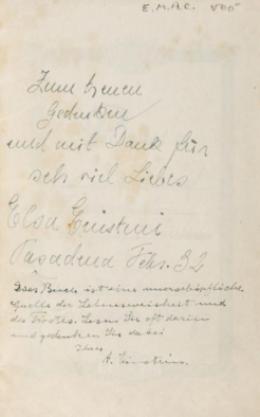 E.M.A.C.
Zum treuen
Gedenken
und mit Dank für
sehr viel Liebes
Elsa Einstein
Pasadena Febr. 32
Dieses Buch ist eine unerschöpfliche
Quelle der Lebensweisheit und
des Trostes. Lesen Sie oft darin
und gedenken Sie dabei
Ihres
A. Einstein.